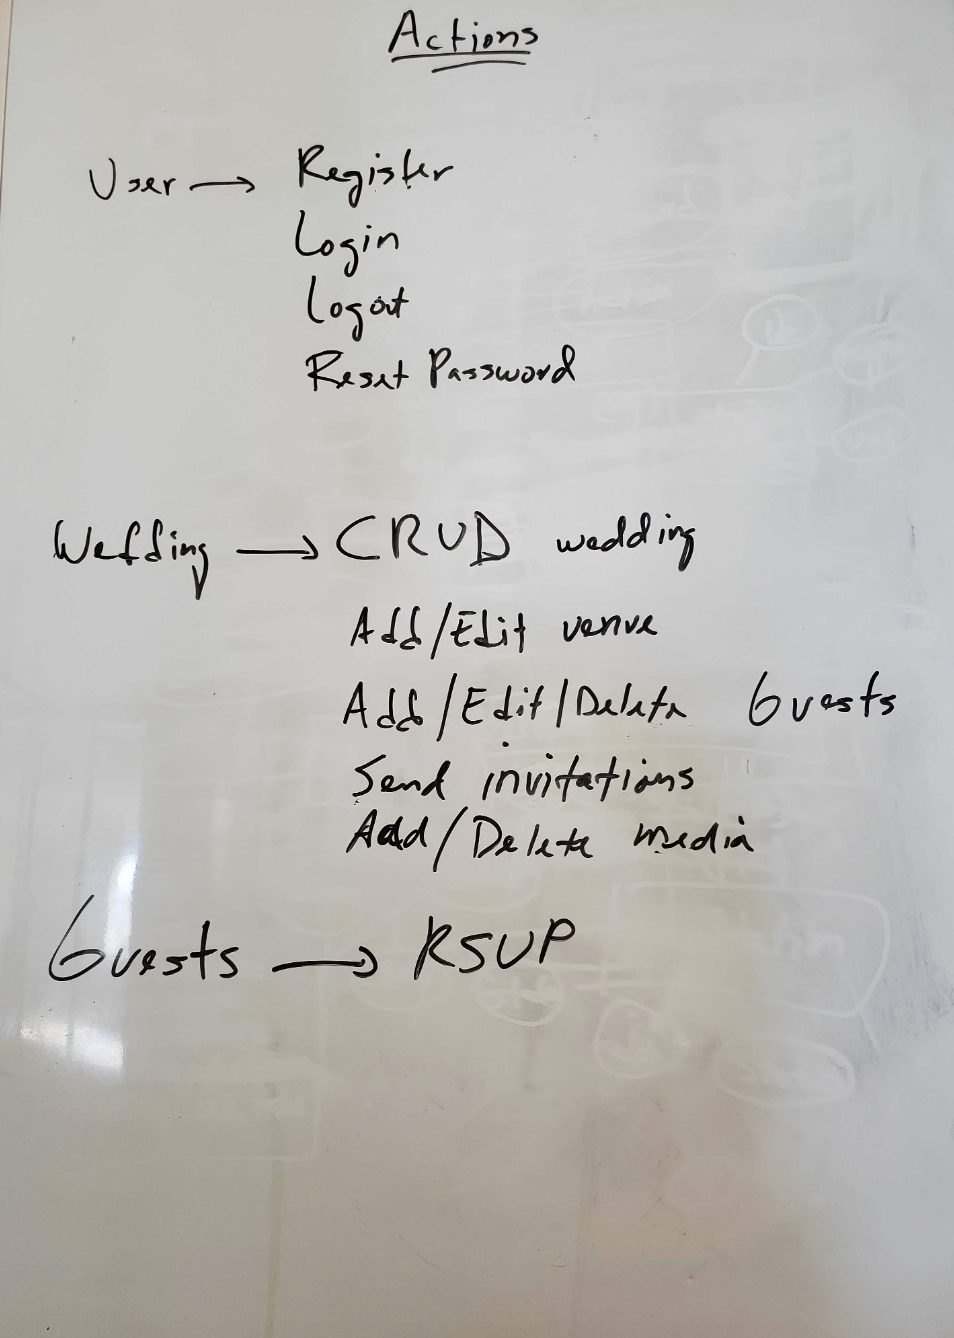 Actions
User → Register
Login
Logout
Reset Password
Wedding → CRUD wedding
Add/Edit venue
Add/Edit/Delete Guests
Send invitations
Add/Delete media
Guests → RSVP